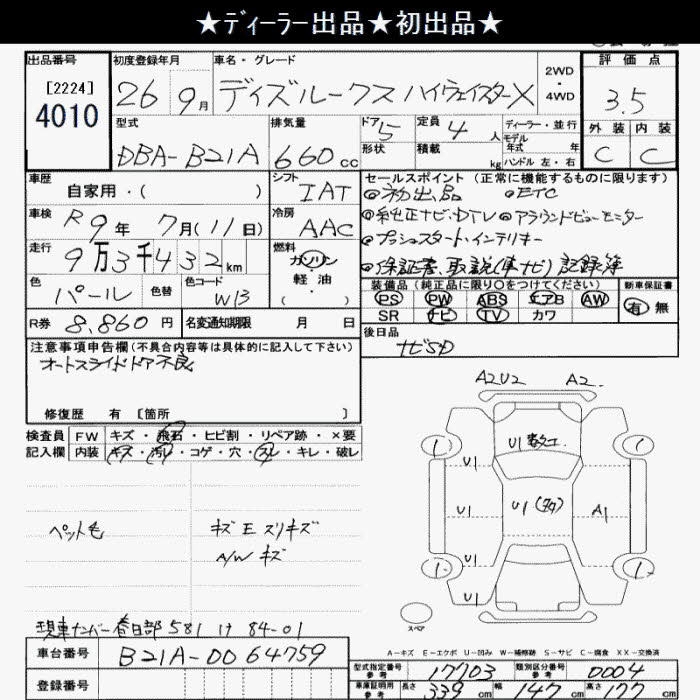 ★ディーラー出品★初出品★
出品番号 初度登録年月 車名・グレード 評価点
[2224]
4010
26 9月 デイズルークス ハイウェイスターX 2WD・4WD 3.5
型式 排気量 ドア 定員 ディーラー・並行 外装 内装
DBA-B21A 660cc 5 4人 モデル年式 年 C C
形状 積載 kg ハンドル 左・右
車歴 シフト セールスポイント (正常に機能するものに限ります)
自家用・( ) IAT ◎初出品 ◎ETC
車検 R9年7月(11日) 冷房 AAC ◎純正ナビ・DTV ◎アラウンドビューモニター
走行 9万3千432km 燃料 ガソリン ◎プッシュスタート・インテリキー
軽油・( ) ◎保証書、取説(車ナビ) 記録簿
色 パール 色替 色コード W13
装備品 (純正品に限り○をつけてください) 新車保証書
PS PW ABS エアB AW 有 無
SR ナビ TV カワ
R券 8,860円 名変通知期限 月 日
後日品
ナビSD
注意事項申告欄 (不具合内容等は具体的に記入して下さい)
オートスライドドア不良
修復歴 有 [箇所 ]
検査員 FW キズ・飛石・ヒビ割・リペア跡・×要
記入欄 内装 キズ・汚レ・コゲ・穴・スレ・キレ・破レ
ペット毛 キズE スリキズ
A/W キズ
A2U2 A2
1 1
U1
U1 U1 A1
U1
1 1
スペア
A-キズ E-エクボ U-凹み W-補修跡 S-サビ C-腐食 XX-交換済
現車ナンバー 春日部 581 け 84-01
車台番号 B21A-0064759
登録番号
型式指定番号 参考 17703 類別区分番号 参考 0004
車庫証明用 参考 長さ 339cm 幅 147cm 高さ 177cm